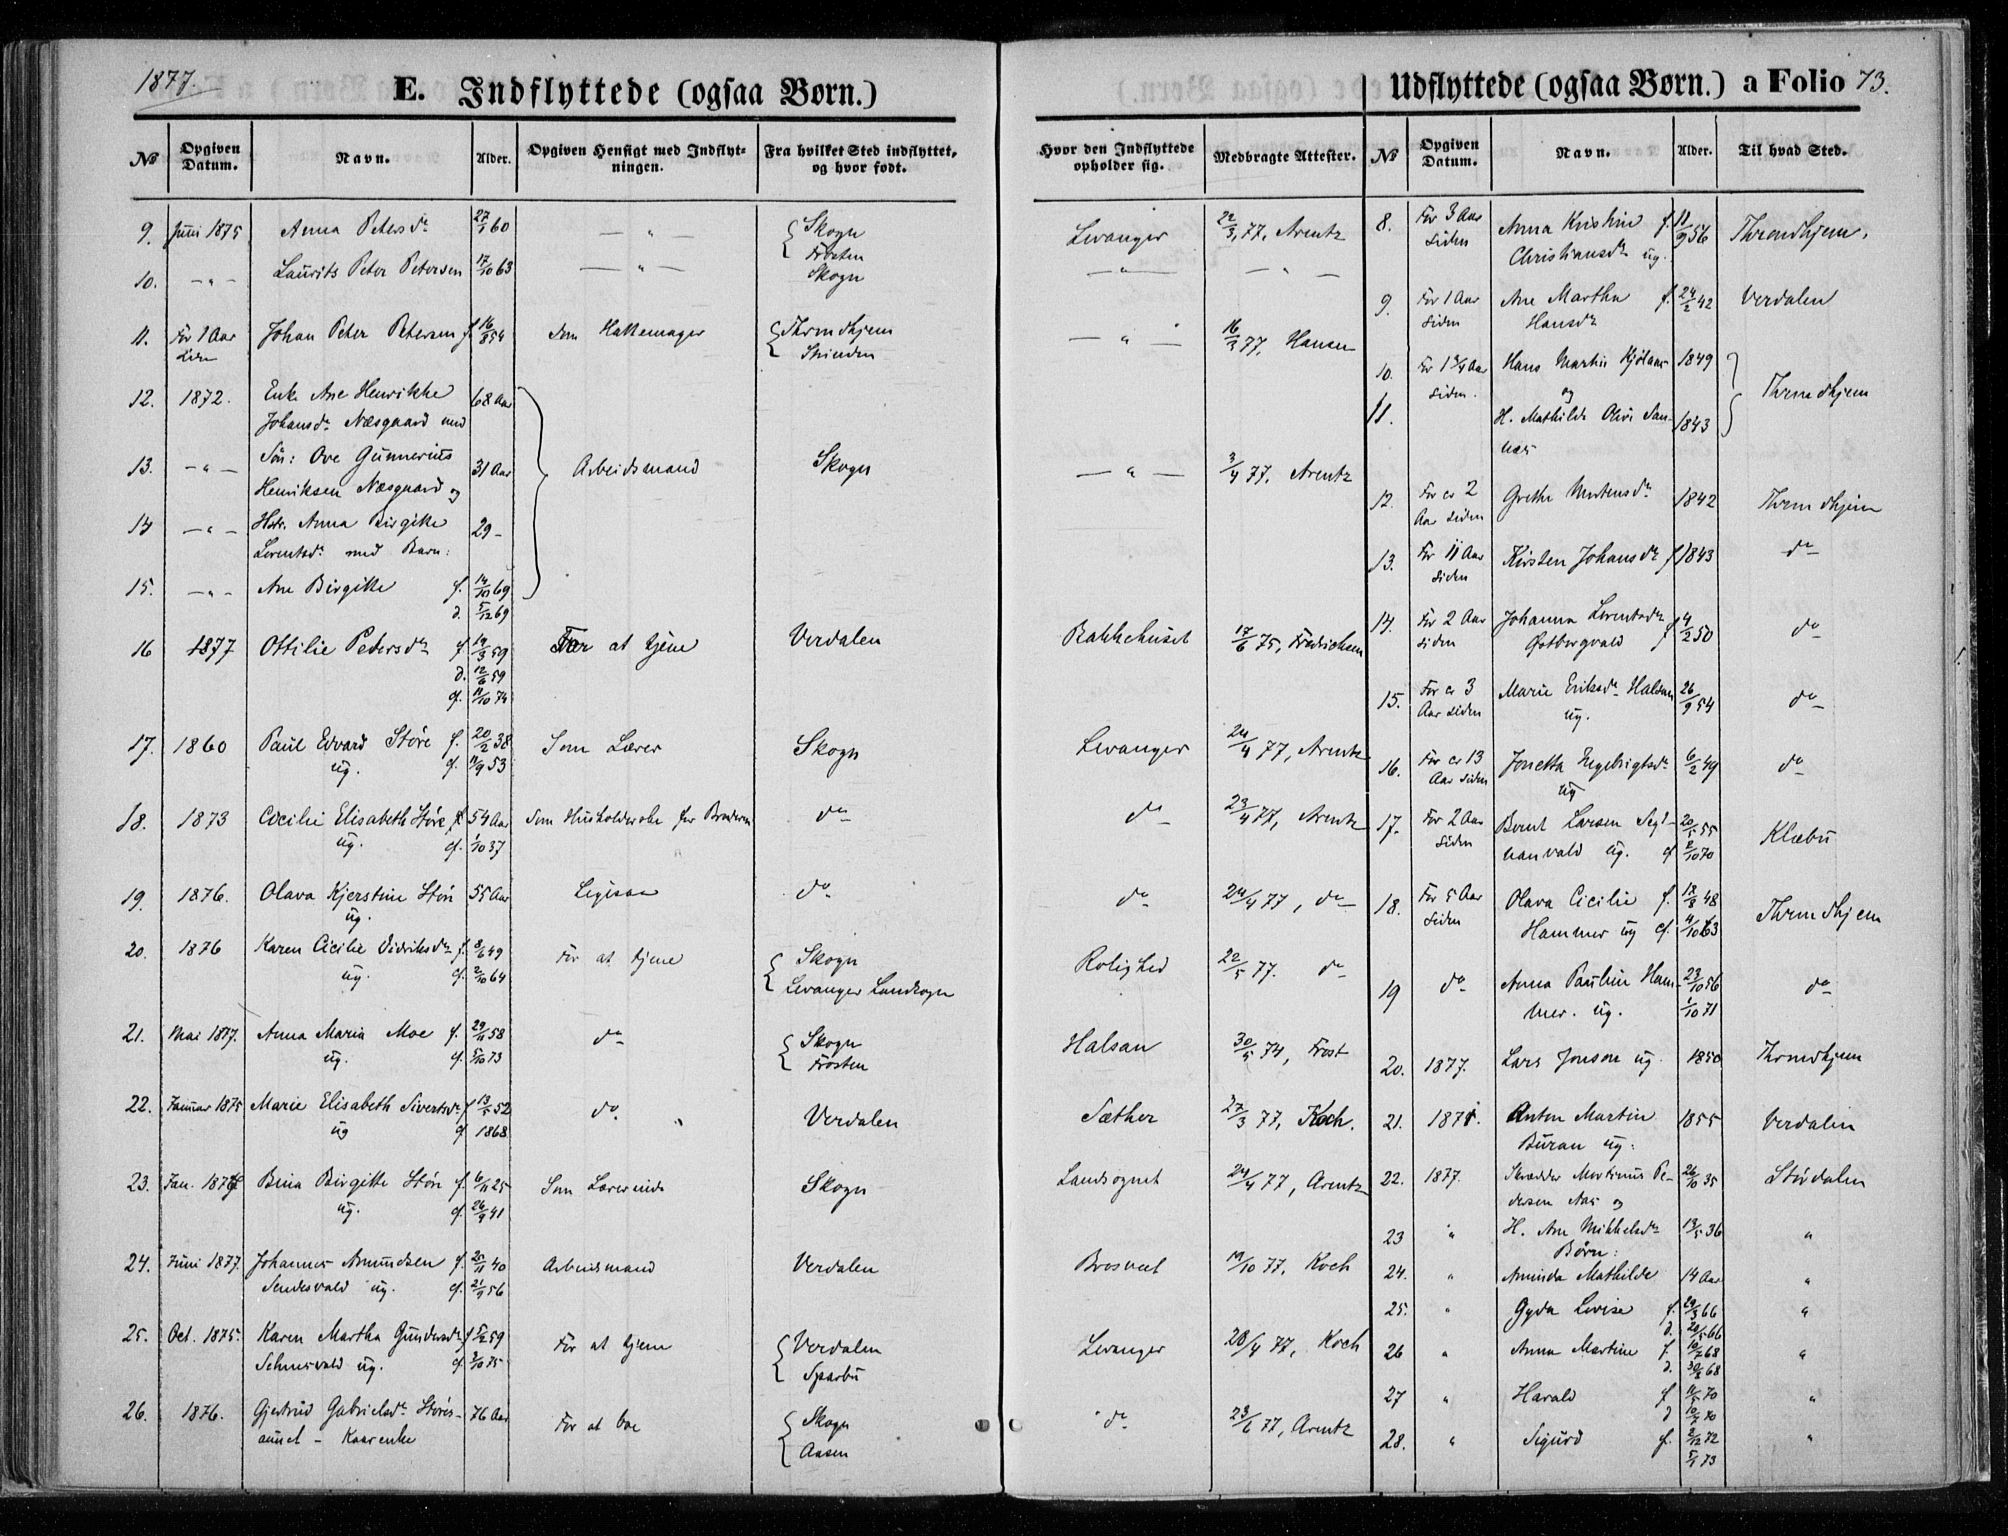 1877.
E. Indflyttede (ogsaa Børn.)
№ Opgiven Datum. Navn. Alder. Opgiven Hensigt med Indflytningen. Fra hvilket Sted indflyttet, og hvor født. Hvor den Indflyttede opholder sig. Medbragte Attester.
9. Juni 1875 Anna Petersdr 27/1 60 — " — Skogn Levanger 22/3 77, Arentz
Frosten
10. — " — Laurits Peter Petersen 17/10 63 — " — Skogn — " — — " —
11. For 1 Aar Johan Peter Petersen f. 16/8 54 Som Hattemager Throndhjem — " — 16/3 77, Hansen
siden
12. 1872. Enke Ane Henrikke 68 Aar
Johansdr Næsgaard med
13. — " — Søn: Ove Gunnerius 31 Aar Arbeidsmand Skogn — " — 3/4 77, Arentz
Henriksen Næsgaard og
14 — " — Hstr. Anna Birgitte 29 –
Lorentsdr med Barn:
15. — " — Ane Birgitte f. 14/10 69
d. 5/12 69
16 1877 Ottilie Petersdr f. 19/3 59 For at tjene Verdalen Bakkehuset 17/6 75, Fredrichsen
d. 12/6 59
cf. 11/10 74
17. 1860 Paul Edvard Støre f. 20/2 38 Som Lærer Skogn Levanger 24/4 77, Arentz
ug. cf. 11/9 53
18. 1873 Cecilie Elisabeth Støre 54 Aar Som Husholderske for Broderen do do 23/4 77, Arentz
ug. cf. 1/10 37
19. 1876. Olava Kjerstine Støre 55 Aar Ligesaa do do 24/4 77, do
ug.
20. 1876 Karen Cicilie Didriksdr f. 8/6 49 For at tjene Skogn Rolighed 22/5 77. do
ug. cf. 2/10 64 Levanger Landsogn
21. Mai 1877. Anna Maria Moe f. 29/11 58 do Skogn Halsan 30/5 74, Frost
ug. cf. 5/10 73 Frosten
22. Januar 1875 Marie Elisabeth Sivertsdr f 13/5 52 do. Verdalen Sæther 27/3 77, Koch.
ug cf 1868
23. Jan. Bina Birgitte Støre f. 6/11 25 Som Lærerinde Skogn Landsognet 24/4 77, Arentz
ug. cf. 26/9 41
24. Juni 1877. Johannes Amundsen f. 25/11 40 Arbeidsmand Verdalen 19/10 77, Koch
ug. cf. 21/9 56
25. Oct. 1875. Karen Martha Gundersdr f 5/2 59 For at tjene Verdalen Levanger 28/4 77, Koch
ug. cf 3/10 75 Sparbu
26. 1876. Gjertrud Gabrielsdr Støres- 76 Aar For at boe Skogn do 23/6 77, Arentz
aunet – Kaarenke Aasen
Udflyttede (ogsaa Børn.) a Folio 73.
№ Opgiven Datum. Navn. Alder. Til hvad Sted.
8. For 3 Aar Anna Kristine f. 11/9 56 Throndhjem.
siden Christiansdr ug.
9. For 1 Aar Ane Martha f. 24/2 42 Verdalen
siden Hansdr
10. For 1 3/4 Aar Hans Martin Kjølaas 1849 Throndhjem
siden. og
11. H. Mathilde Olive San- 1843
næs
12. For ca 2 Grethe Mortensdr 1842 Throndhjem
Aar siden
13. For 11 Aar Kirsten Johansdr f 1843 do
siden
14. For 2 Aar Johanna Lorentsdr f 4/2 50 do
siden Østborgvald
15. For ca 3 Marie Eriksdr Halsan 26/9 54 do
Aar siden ug.
16. For ca 13 Jonetta Ingebrigtsdr 6/2 49 do
Aar siden ug
17. For 2 Aar Bernt Larsen Segl- 20/5 55 Klæbu
siden nanvald ug. cf 2/10 70
18. For 5 Aar Olava Cicilie f. 18/8 48 Throndhjem
siden Hammer ug cf. 4/10 63
19 do Anna Pauline Ham- 23/10 56 do
mer. ug. 1/10 71
20. 1877. Lars Jonson ug. 1850 Throndhjem
21. Anton Martin 1855 Verdalen
Buran ug.
22. 1877. Skrædder Martinus Pe- 26/10 35 Størdalen
dersen Aas og
23 " H. Ane Mikkelsdr 13/5 36 "
Børn:
24. " Aminda Mathilde 14 Aar "
25. " Gyda Lovise f. 29/3 66 "
d. 20/5 66
26 " Anna Martine f. 10/7 68 "
d. 30/8 68
27 " Harald f 11/5 70 "
d 10/7 70
28. " Sigurd f. 2/12 72 "
5/1 73